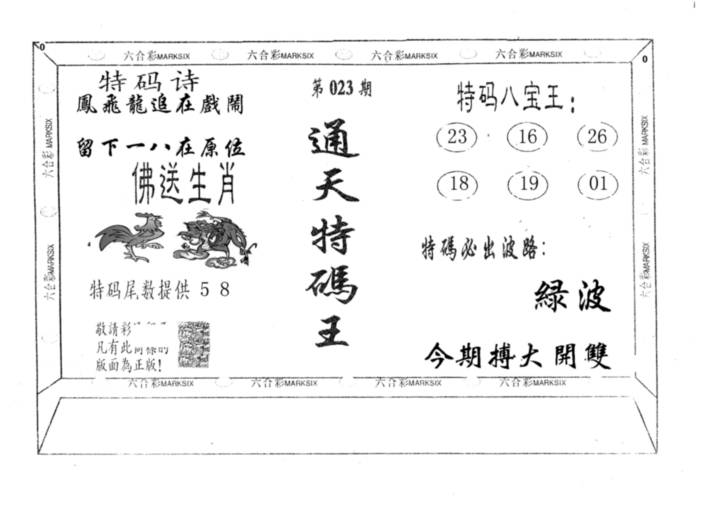 六合彩MARKSIX 六合彩MARKSIX 六合彩MARKSIX 六合彩MARKSIX
0
0
六合彩MARKSIX
六合彩MARKSIX
特码诗
鳳飛龍追在戲鬧
留下一八在原位
佛送生肖
特码尾数提供 5 8
敬請彩
凡有此
版面為正版!
第 023 期
通天特碼王
特码八宝王:
23 16 26
18 19 01
特碼必出波路:
綠波
今期搏大開雙
六合彩MARKSIX
六合彩MARKSIX
六合彩MARKSIX 六合彩MARKSIX 六合彩MARKSIX 六合彩MARKSIX